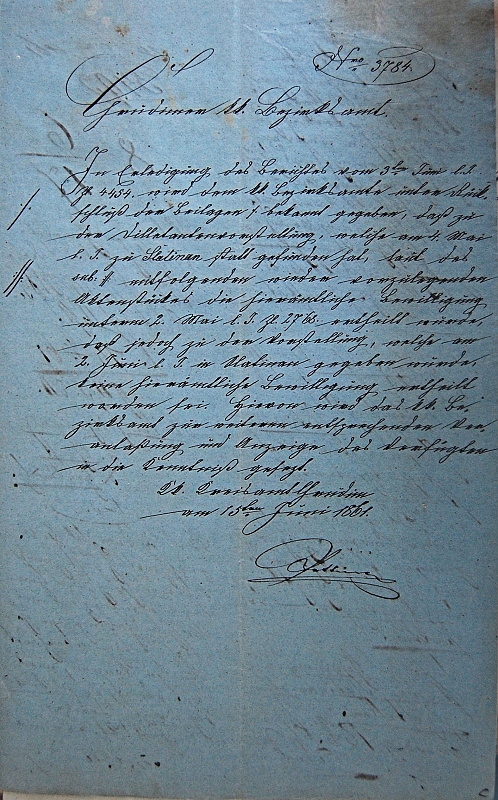 Nro 3784.
Chrudimer kk. Bezirksamt.
In Erledigung des Berichtes vom 3ten Juni l. J.
Z. 4454. wird dem kk. Bezirksamte unter Rück-
schluß der Beilagen ⁒ bekannt gegeben, daß zu
der Dilletantenvorstellung, welche am 4. Mai
l. J. zu Slatinan statt gefunden hat, laut des
sub mitfolgenden wieder vorzulegenden
Aktenstückes die hierämtliche Bewilligung
unterm 2. Mai l. J. Z. 2765. ertheilt wurde,
daß jedoch zu der Vorstellung, welche am
2. Juni l. J. in Slatinan gegeben wurde,
keine hierämtliche Bewilligung ertheilt
worden sei. Hievon wird das kk. Be-
zirksamt zur weitern entsprechenden Ver-
anlaßung und Anzeige des Verfügten
in die Kenntniß gesezt.
Kk. Kreisamt Chrudim
am 15ten Juni 1861.